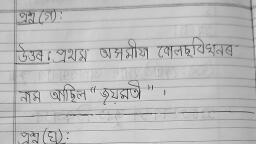 প্ৰশ্ন (গ):
উত্তৰঃ প্ৰথম অসমীয়া বোলছবিখনৰ
নাম আছিল "জয়মতী" ।
প্ৰশ্ন (ঘ):